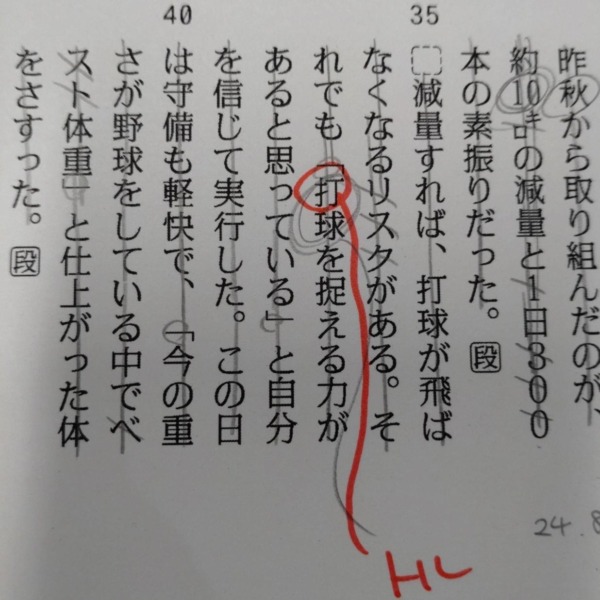 35
40
昨秋から取り組んだのが、
約10㌔の減量と1日300
本の素振りだった。段
減量すれば、打球が飛ば
なくなるリスクがある。そ
れでも「打球を捉える力が
あると思っている」と自分
を信じて実行した。この日
は守備も軽快で、「今の重
さが野球をしている中でベ
スト体重」と仕上がった体
をさすった。段
HL
24.8